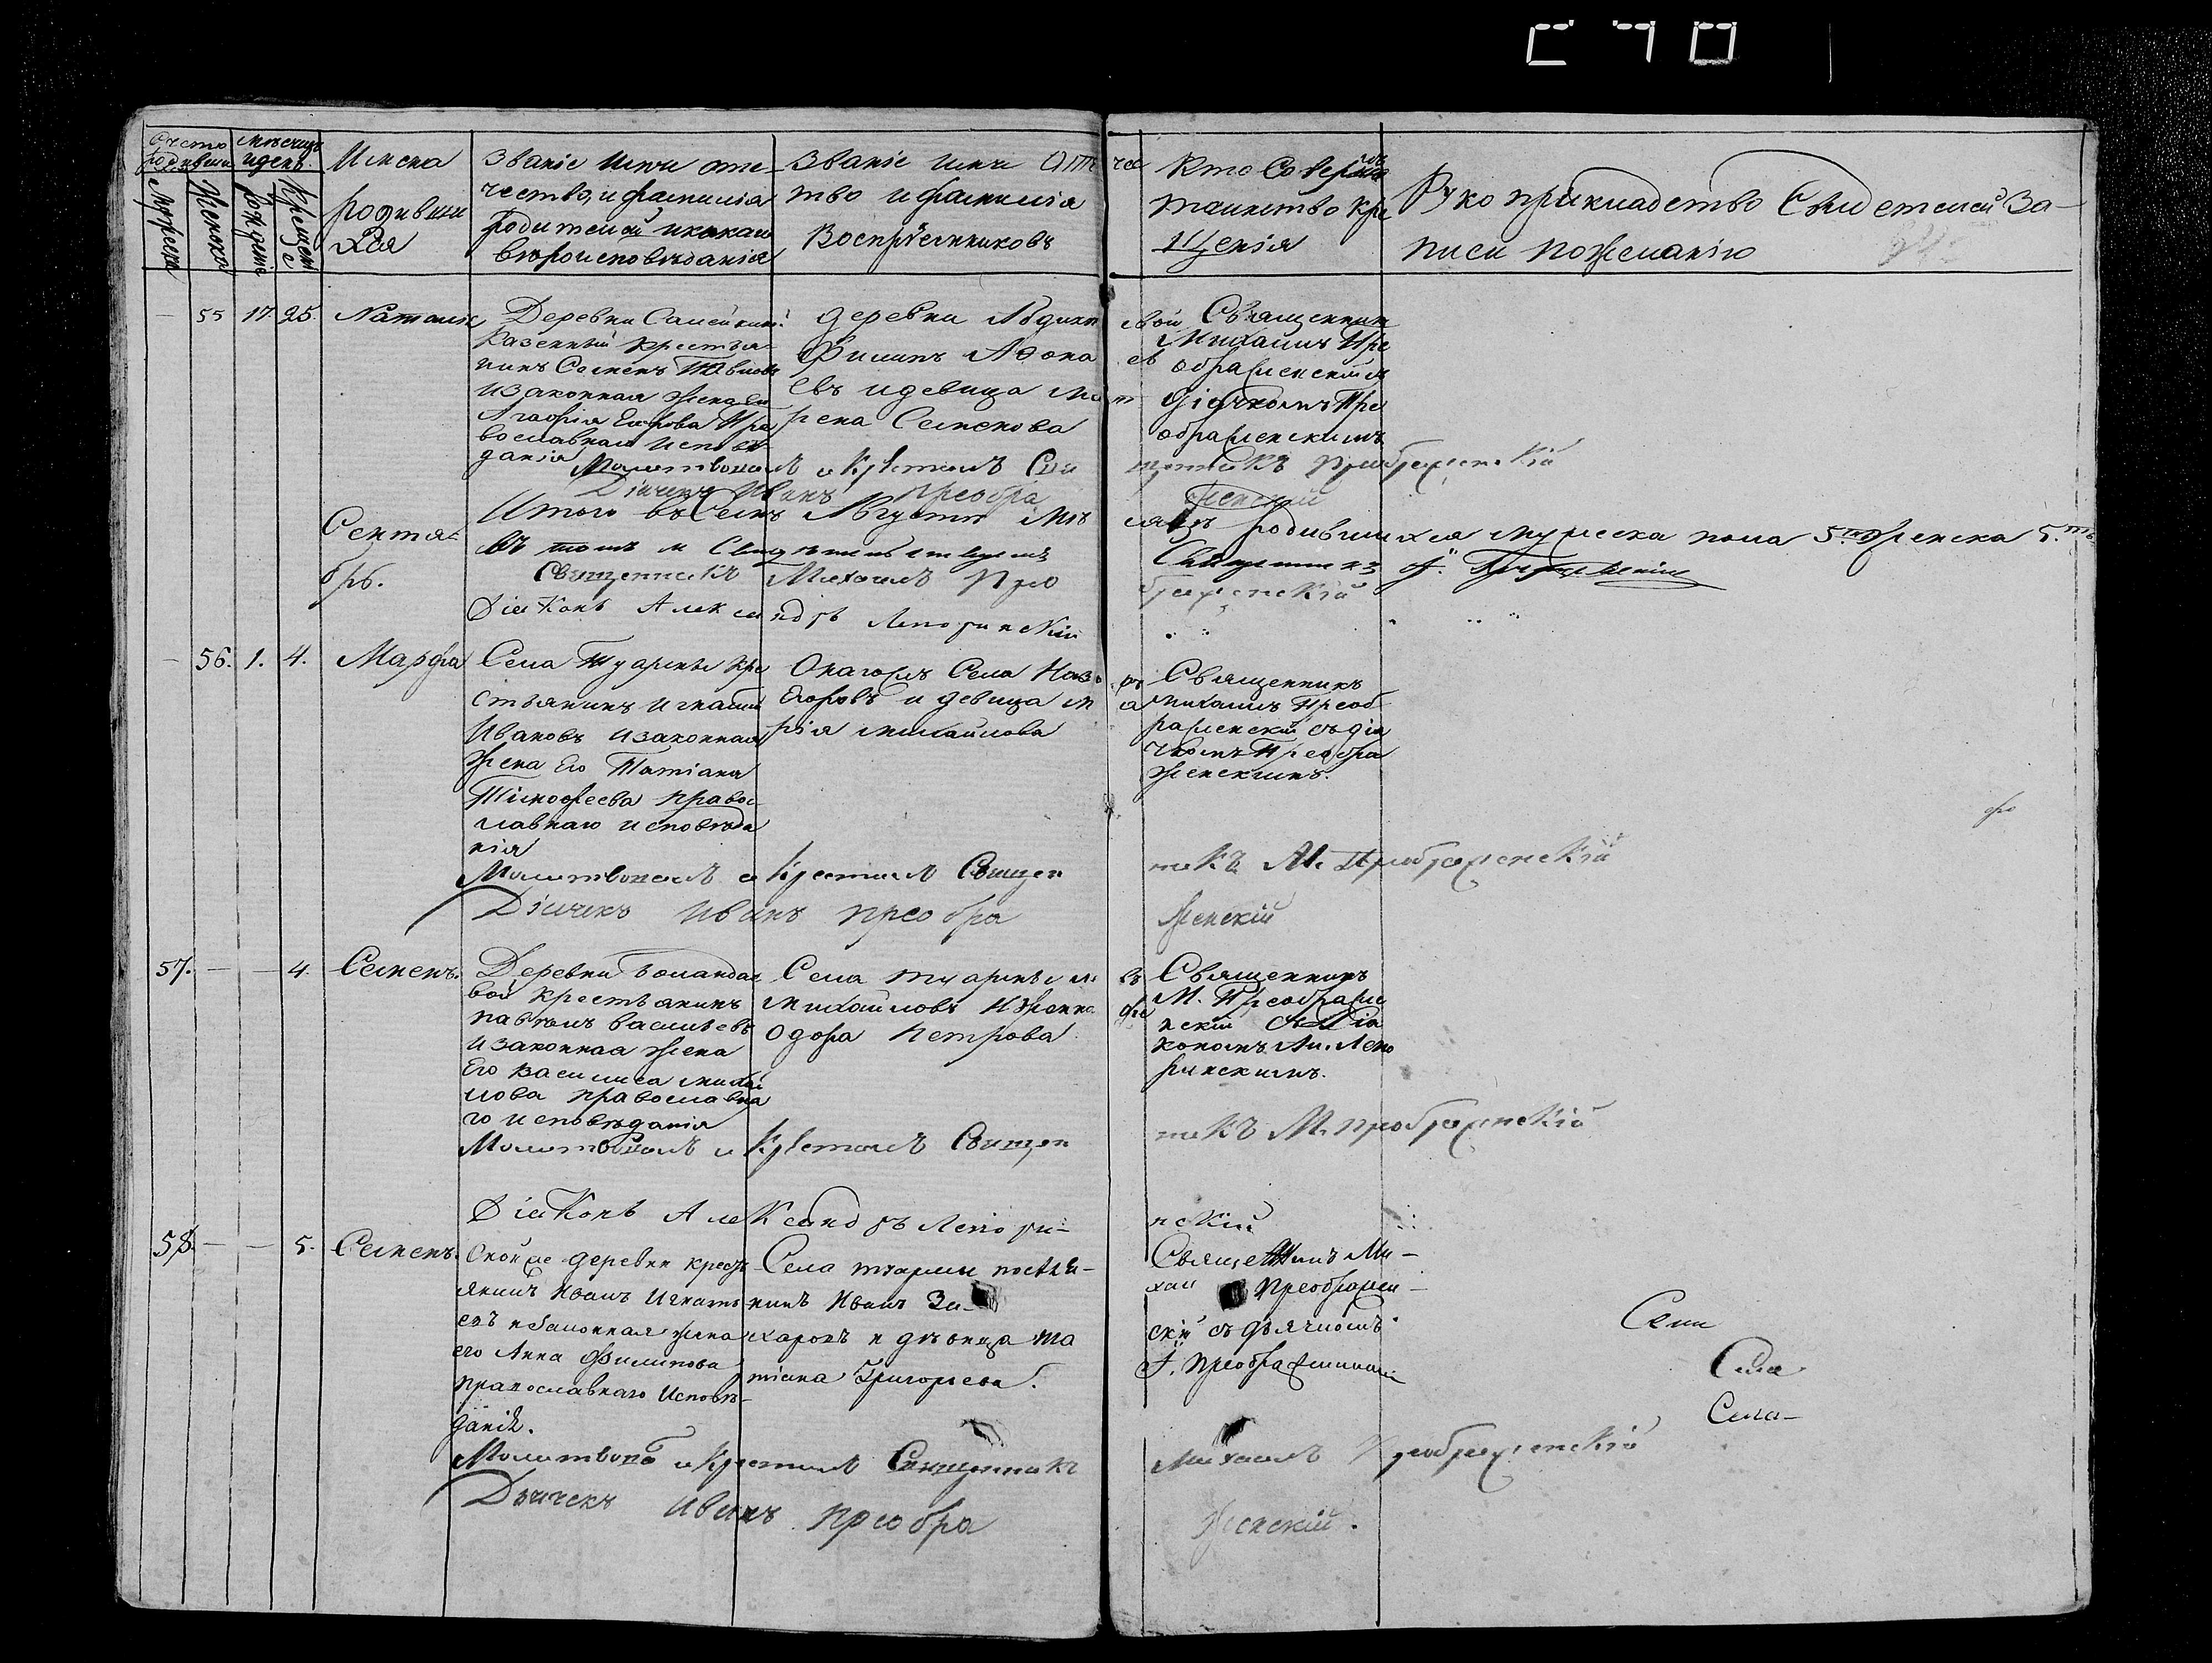 Счетъ родивши Мѣсяцъ и день.
Мужеска Женска Рожденія Крещенія
Имена родивши хся
Званіе имя оте-
чество, и фамилія
родителей и какаго
вѣроисповѣданія
Званіе имя Отче
тво и фамилія
Воспріемниковъ
Кто Совершалъ
таинство кре
щенія
Рукоприкладство Свидетелей За-
писи по желанію
— 55 17 25. Наталія
Деревни
Казенный крестья-
нинъ Семенъ
и законная жена его
Агафія Пра
вославнаго исповѣ
данія
деревни
Филипъ
евъ и девица Мат
рена Семенова
Священник
Михаилъ Пре
ображенскій съ
діячкомъ Пре
ображенскимъ
Молитвовалъ и Крестилъ Священникъ Преображенскій
Дьячекъ Иванъ Преображенскій
Сентя-
брь.
Итого въ Семъ Августѣ Мѣсяцѣ родившихся мужеска пола 5.ть женска 5.ть
въ томъ и Свидѣтельствуемъ
Священникъ Михаилъ Преображенскій
Діаконъ Александръ Лепоринскій
— 56. 1. 4. Марфа
Села Туармы кре
стьянинъ Игнатій
Ивановъ и законная
жена Его Татіана
Тимофеева Правос
лавнаго исповѣда
нія
Онагожъ Села
Егоровъ и девица Ма
рія Михайлова
Священникъ
Михаилъ Преоб
раженскій съ дія
чкомъ Преобра
женскимъ.
Молитвовалъ и Крестилъ Священникъ М. Преображенскій
Дьячекъ Иванъ Преображенскій
57. — — 4. Семенъ.
Деревни
вой Крестьянинъ
Павелъ Васильевъ
и законная жена
Его Василиса Михай
лова православна
го исповѣданія
Села Туармы
Михайловъ и женка Фе
одора Петрова
Священникъ
М. Преображе
нскій съ Діа
кономъ Ал. Лепо
ринскимъ.
Молитвовалъ и Крестилъ Священникъ М. Преображенскій
Діаконъ Александръ Лепоринскій
58. — — 5. Семенъ.
Оной же деревни крест
янинъ Иванъ Игнать
евъ и законная жена
его Анна Филипова
православнаго Исповѣ-
данія.
Села туармы поселя-
нинъ Иванъ За-
харовъ и дѣвица Та
тіана Григорьева.
Священникъ Ми-
хаи Преображен-
скій съ дьячкомъ
І. Преображенскимъ
Села
Села-
Молитвовалъ и Крестилъ Священникъ Михаилъ Преображенскій
Дьячекъ Иванъ Преображенскій.